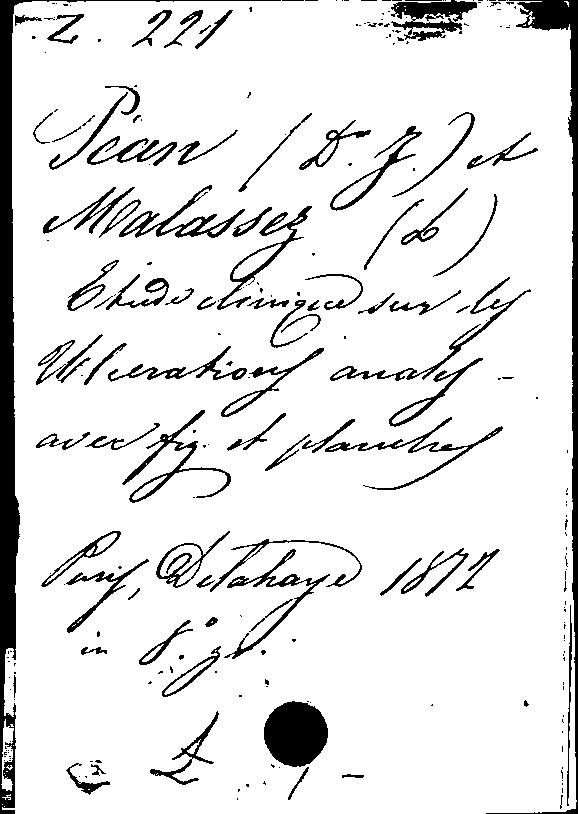 Z. 221
Péan (Dr. J.) et
Malassez (L)
Etude clinique sur les
Ulcerations anales -
avec fig. et planches
Paris, Delahaye 1872
in 8.° gr.